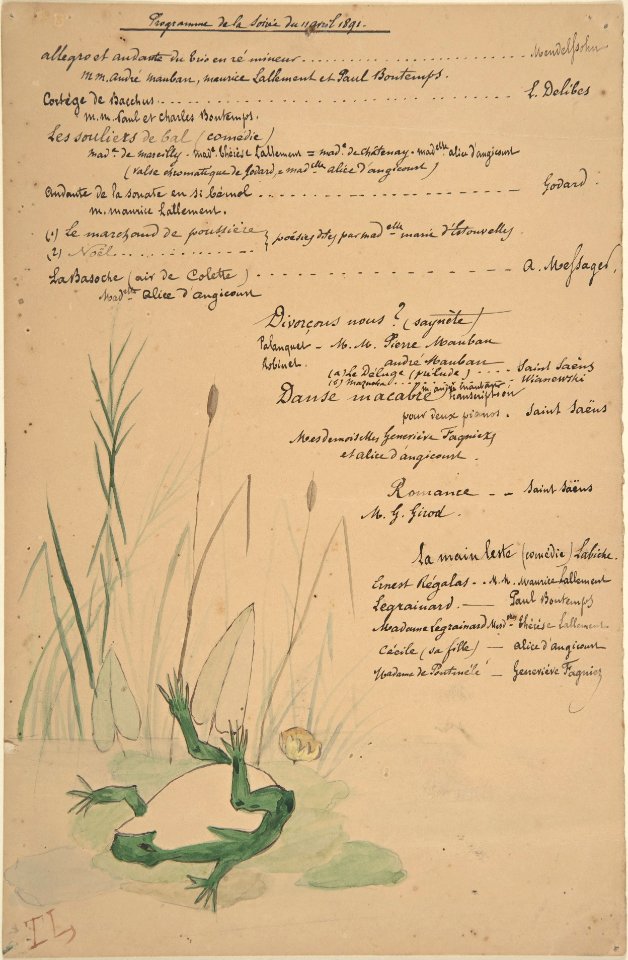 Programme de la Soirée du 11 avril 1891.
allegro et andante du trio en ré mineur ........ Mendelssohn
m.m. andré Mauban, maurice Lallement et Paul Bontemps.
Cortège de Bacchus ........ L. Delibes
m.m. Paul et Charles Bontemps.
Les souliers de bal (comédie)
mad.e de marcilly - mad.e thérèse Lallement = mad.e de châtenay - mad.elle alice d'angicourt
(valse chromatique de Godard, = mad.elle alice d'angicourt)
Andante de la sonate en si bémol - - - - Godard.
m. maurice Lallement.
(1) Le marchand de poussière } poésies dites par mad.elle marie d'Estouvelles.
(2) Noël ........
La Basoche (air de Colette) - - - - a. Messager.
Mad.elle alice d'angicourt
Divorçons nous? (saynète)
Palanquet - M.M. Pierre Mauban
Robinet. andré Mauban
(a) Le Déluge (prélude) .... Saint Saëns
(b) Mazurka .... m. andré Mauban - Wianewski
Danse macabre transcription
pour deux pianos. Saint Saëns
Mesdemoiselles Geneviève Fagniez
et alice d'angicourt.
Romance - - Saint Saëns
M. G. Girod.
La main leste (comédie) Labiche.
Ernest Régalas - M.M. Maurice Lallement
Legrainard. — Paul Bontemps
Madame Legrainard Mesd.elles thérèse Lallement
Cécile (sa fille) — alice d'angicourt
Madame de Pontmêlé — Geneviève Fagniez
TL